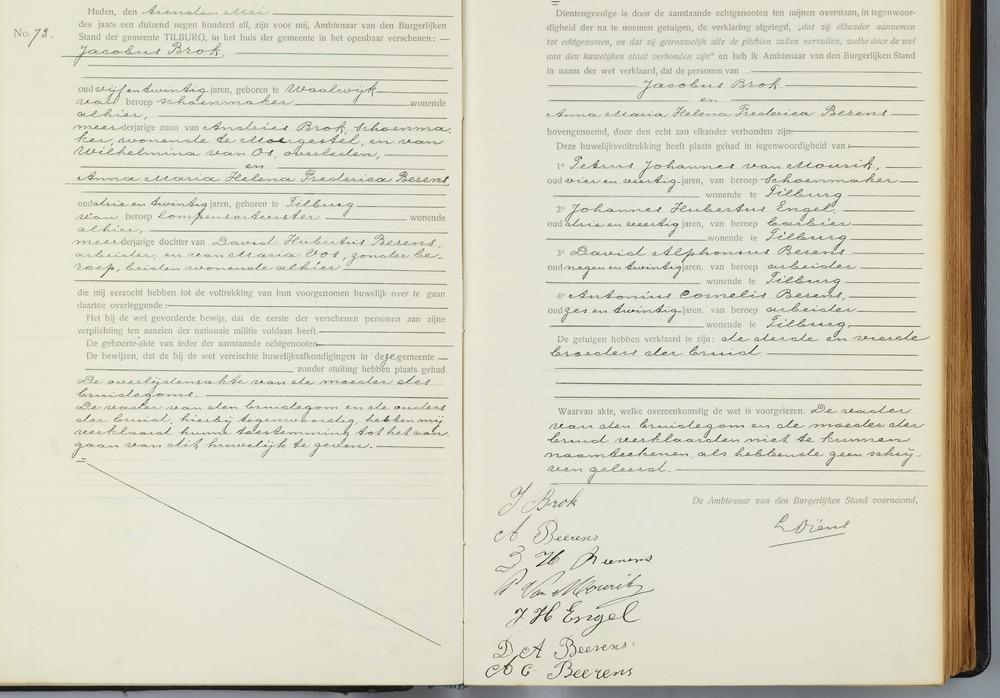 No. 73.
Heden, den tienden Mei
des jaars een duizend negen honderd elf, zijn voor mij, Ambtenaar van den Burgerlijken
Stand der gemeente TILBURG, in het huis der gemeente in het openbaar verschenen:
Jacobus Brok,
oud vijf en twintig jaren, geboren te Waalwijk
van beroep schoenmaker wonende
alhier,
meerderjarige zoon van Andries Brok, schoenma-
ker, wonende te Moergestel, en van
Wilhelmina van Os, overleden,
en
Anna Maria Helena Frederica Berens
oud drie en twintig jaren, geboren te Tilburg
van beroep lompensorteerster wonende
alhier,
meerderjarige dochter van David Hubertus Berens,
arbeider, en van Maria Vos, zonder be-
roep, beiden wonende alhier
die mij verzocht hebben tot de voltrekking van hun voorgenomen huwelijk over te gaan
daartoe overleggende:
Het bij de wet gevorderde bewijs, dat de eerste der verschenen personen aan zijne
verplichting ten aanzien der nationale militie voldaan heeft.
De geboorte-akte van ieder der aanstaande echtgenooten
De bewijzen, dat de bij de wet vereischte huwelijksafkondigingen in deze gemeente
zonder stuiting hebben plaats gehad
De overlijdensakte van de moeder des
bruidegoms.
De vader van den bruidegom en de ouders
der bruid, hierbij tegenwoordig, hebben mij
verklaard hunne toestemming tot het aan-
gaan van dit huwelijk te geven.
Dientengevolge is door de aanstaande echtgenooten ten mijnen overstaan, in tegenwoor-
digheid der na te noemen getuigen, de verklaring afgelegd, „dat zij elkander aannemen
tot echtgenooten, en dat zij getrouwelijk alle de plichten zullen vervullen, welke door de wet
aan den huwelijken staat verbonden zijn" en heb ik Ambtenaar van den Burgerlijken Stand
in naam der wet verklaard, dat de personen van
Jacobus Brok
en
Anna Maria Helena Frederica Berens
bovengenoemd, door den echt aan elkander verbonden zijn.
Deze huwelijksvoltrekking heeft plaats gehad in tegenwoordigheid van
1° Petrus Johannes van Mourik,
oud vier en veertig jaren, van beroep schoenmaker
wonende te Tilburg
2° Johannes Hubertus Engel,
oud drie en veertig jaren, van beroep barbier
wonende te Tilburg
3° David Alphonsus Berens
oud negen en twintig jaren, van beroep arbeider
wonende te Tilburg
4° Antonius Cornelis Berens,
oud zes en twintig jaren, van beroep arbeider
wonende te Tilburg
De getuigen hebben verklaard te zijn: de derde en vierde
broeders der bruid
Waarvan akte, welke overeenkomstig de wet is voorgelezen. De vader
van den bruidegom en de moeder der
bruid verklaarden niet te kunnen
naamteekenen, als hebbende geen schrij-
ven geleerd.
De Ambtenaar van den Burgerlijken Stand voornoemd,
J Brok
A Beerens
H Beerens
P Van Mourik
J H Engel
D A Beerens
A C Beerens